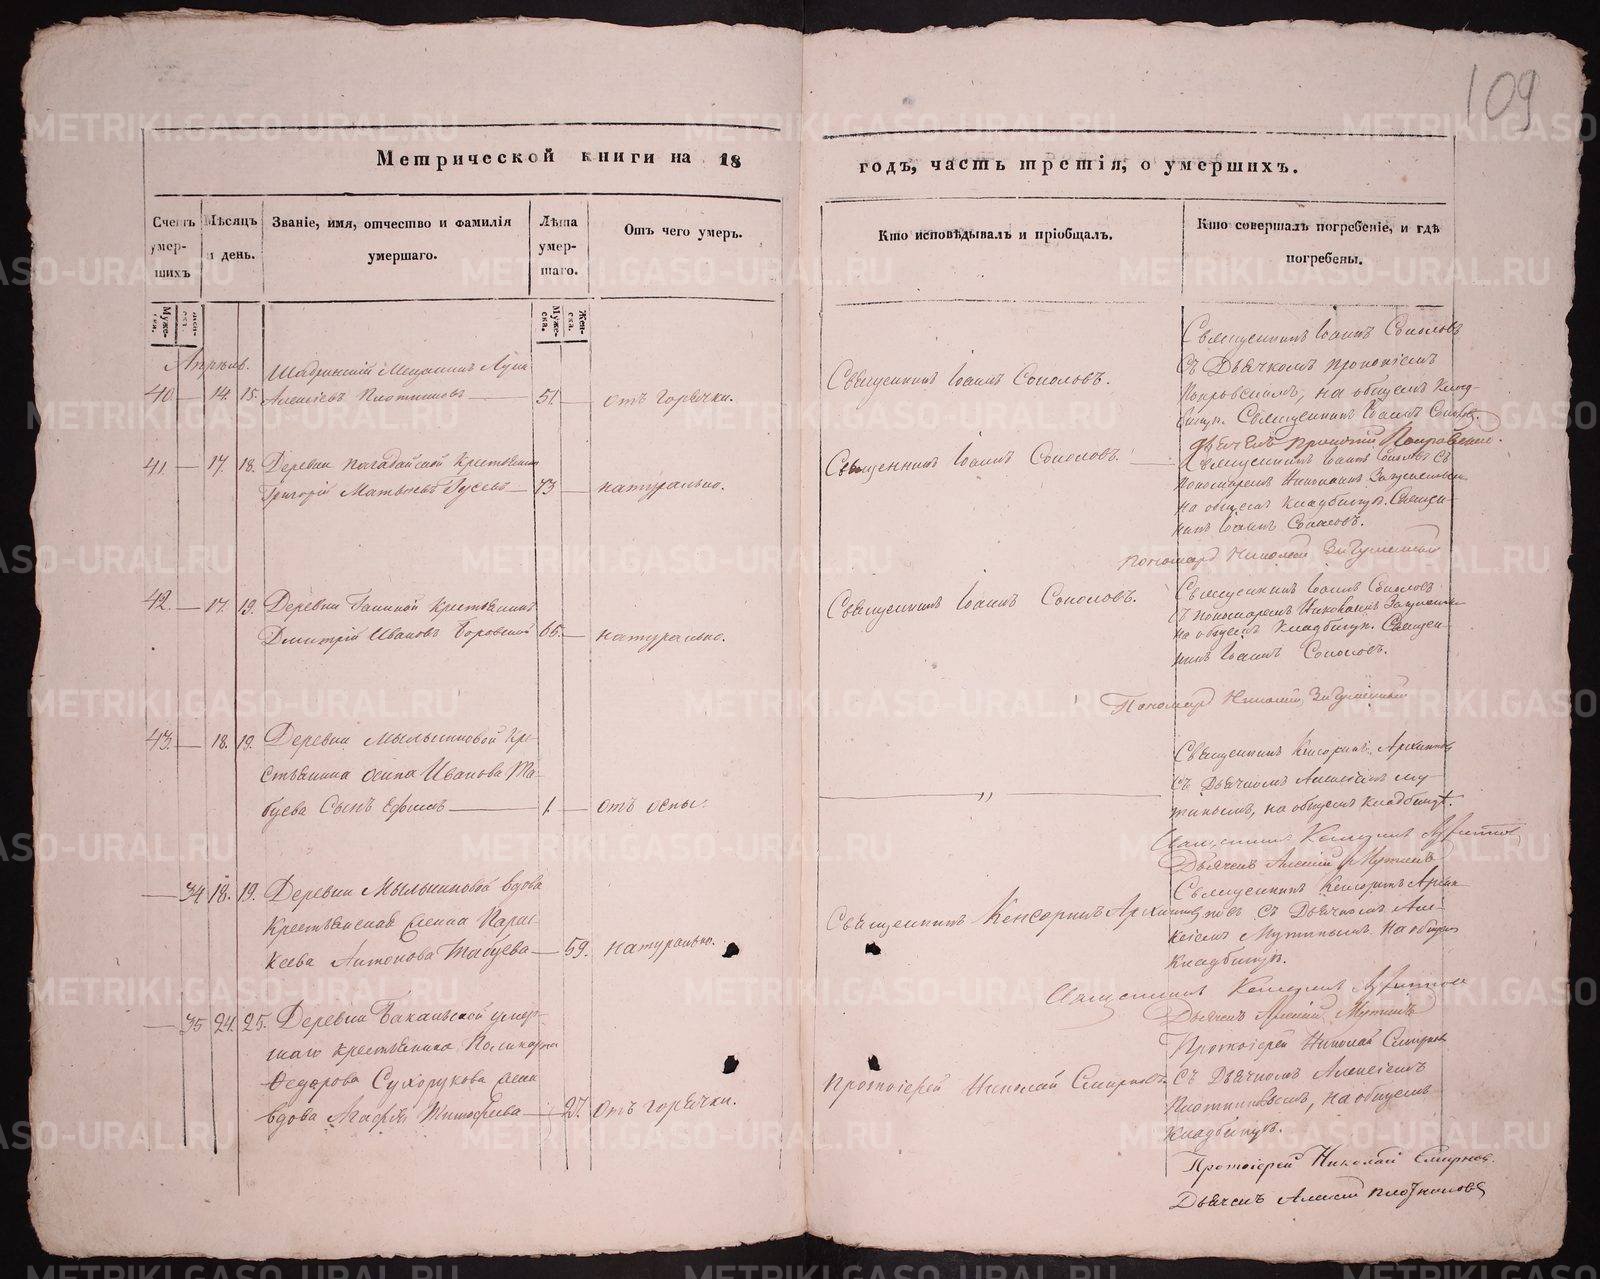 109
Метрической книги на 18
годъ, часть третія, о умершихъ.
Счетъ умер-шихъ
Мѣсяцъ и день.
Званіе, имя, отчество и фамилія
умершаго.
Лѣта умер-шаго.
Отъ чего умеръ.
Кто исповѣдывалъ и пріобщалъ.
Кто совершалъ погребеніе, и гдѣ
погребены.
Муже-ска.
Жен-ска.
Муже-ска.
Жен-ска.
Апрель.
Шадринскій Мещанинъ
40 — 14. 15. Алексѣевъ Плотниковъ — 51. — отъ горячки.
Священникъ Іоаннъ Соколовъ.
Священникъ Іоаннъ Соколовъ
съ Дьячкомъ Прокопіемъ
на общемъ клад-
бищѣ. Священникъ Іоаннъ Соколовъ.
41. — 17. 18. Деревни Крестьянинъ
Григорій Матвѣевъ Гусевъ — 73 — натурально.
Священникъ Іоаннъ Соколовъ.
Священникъ Іоаннъ Соколовъ съ
пономаремъ Николаемъ
на общемъ кладбищѣ. Священ-
никъ Іоаннъ Соколовъ.
Пономарь Николай
42. — 17. 19. Деревни Крестьянинъ
Дмитрій Ивановъ Боровской 65. — натурально.
Священникъ Іоаннъ Соколовъ.
Священникъ Іоаннъ Соколовъ
съ пономаремъ Николаемъ
на общемъ кладбищѣ. Священ-
никъ Іоаннъ Соколовъ.
Пономарь Николай
43. — 18. 19. Деревни Мыльниковой Кре-
стьянина Осипа Иванова Та-
буева Сынъ Ефимъ — 1. — отъ оспы.
— „ —
Священникъ Кенсоринъ Архиповъ
съ Дьячкомъ Алексѣемъ Му-
тинымъ, на общемъ кладбищѣ.
Священникъ Кенсоринъ Архиповъ
Дьячекъ Алексій Мутинъ
— 34 18. 19. Деревни Мыльниковой вдова
Крестьянская жена Парас-
кева Антонова Табуева — 59. натурально.
Священникъ Кенсоринъ Архиповъ
Священникъ Кенсоринъ Архи-
повъ съ Дьячкомъ Але-
ксѣемъ Мутинымъ на общемъ
кладбищѣ.
Священникъ Кенсоринъ Архиповъ
Дьячекъ Алексій Мутинъ
— 35 24. 25. Деревни Бакальской умер-
шаго крестьянина Поликарпа
Федорова Сухорукова жена
вдова Агафія Тимофѣева — 27. отъ горячки.
Протоіерей Николай Смирновъ.
Протоіерей Николай Смирновъ
съ Дьячкомъ Алексѣемъ
Плотниковымъ, на общемъ
кладбищѣ.
Протоіерей Николай Смирновъ.
Дьячекъ Алексѣй Плотниковъ
METRIKI.GASO-URAL.RU